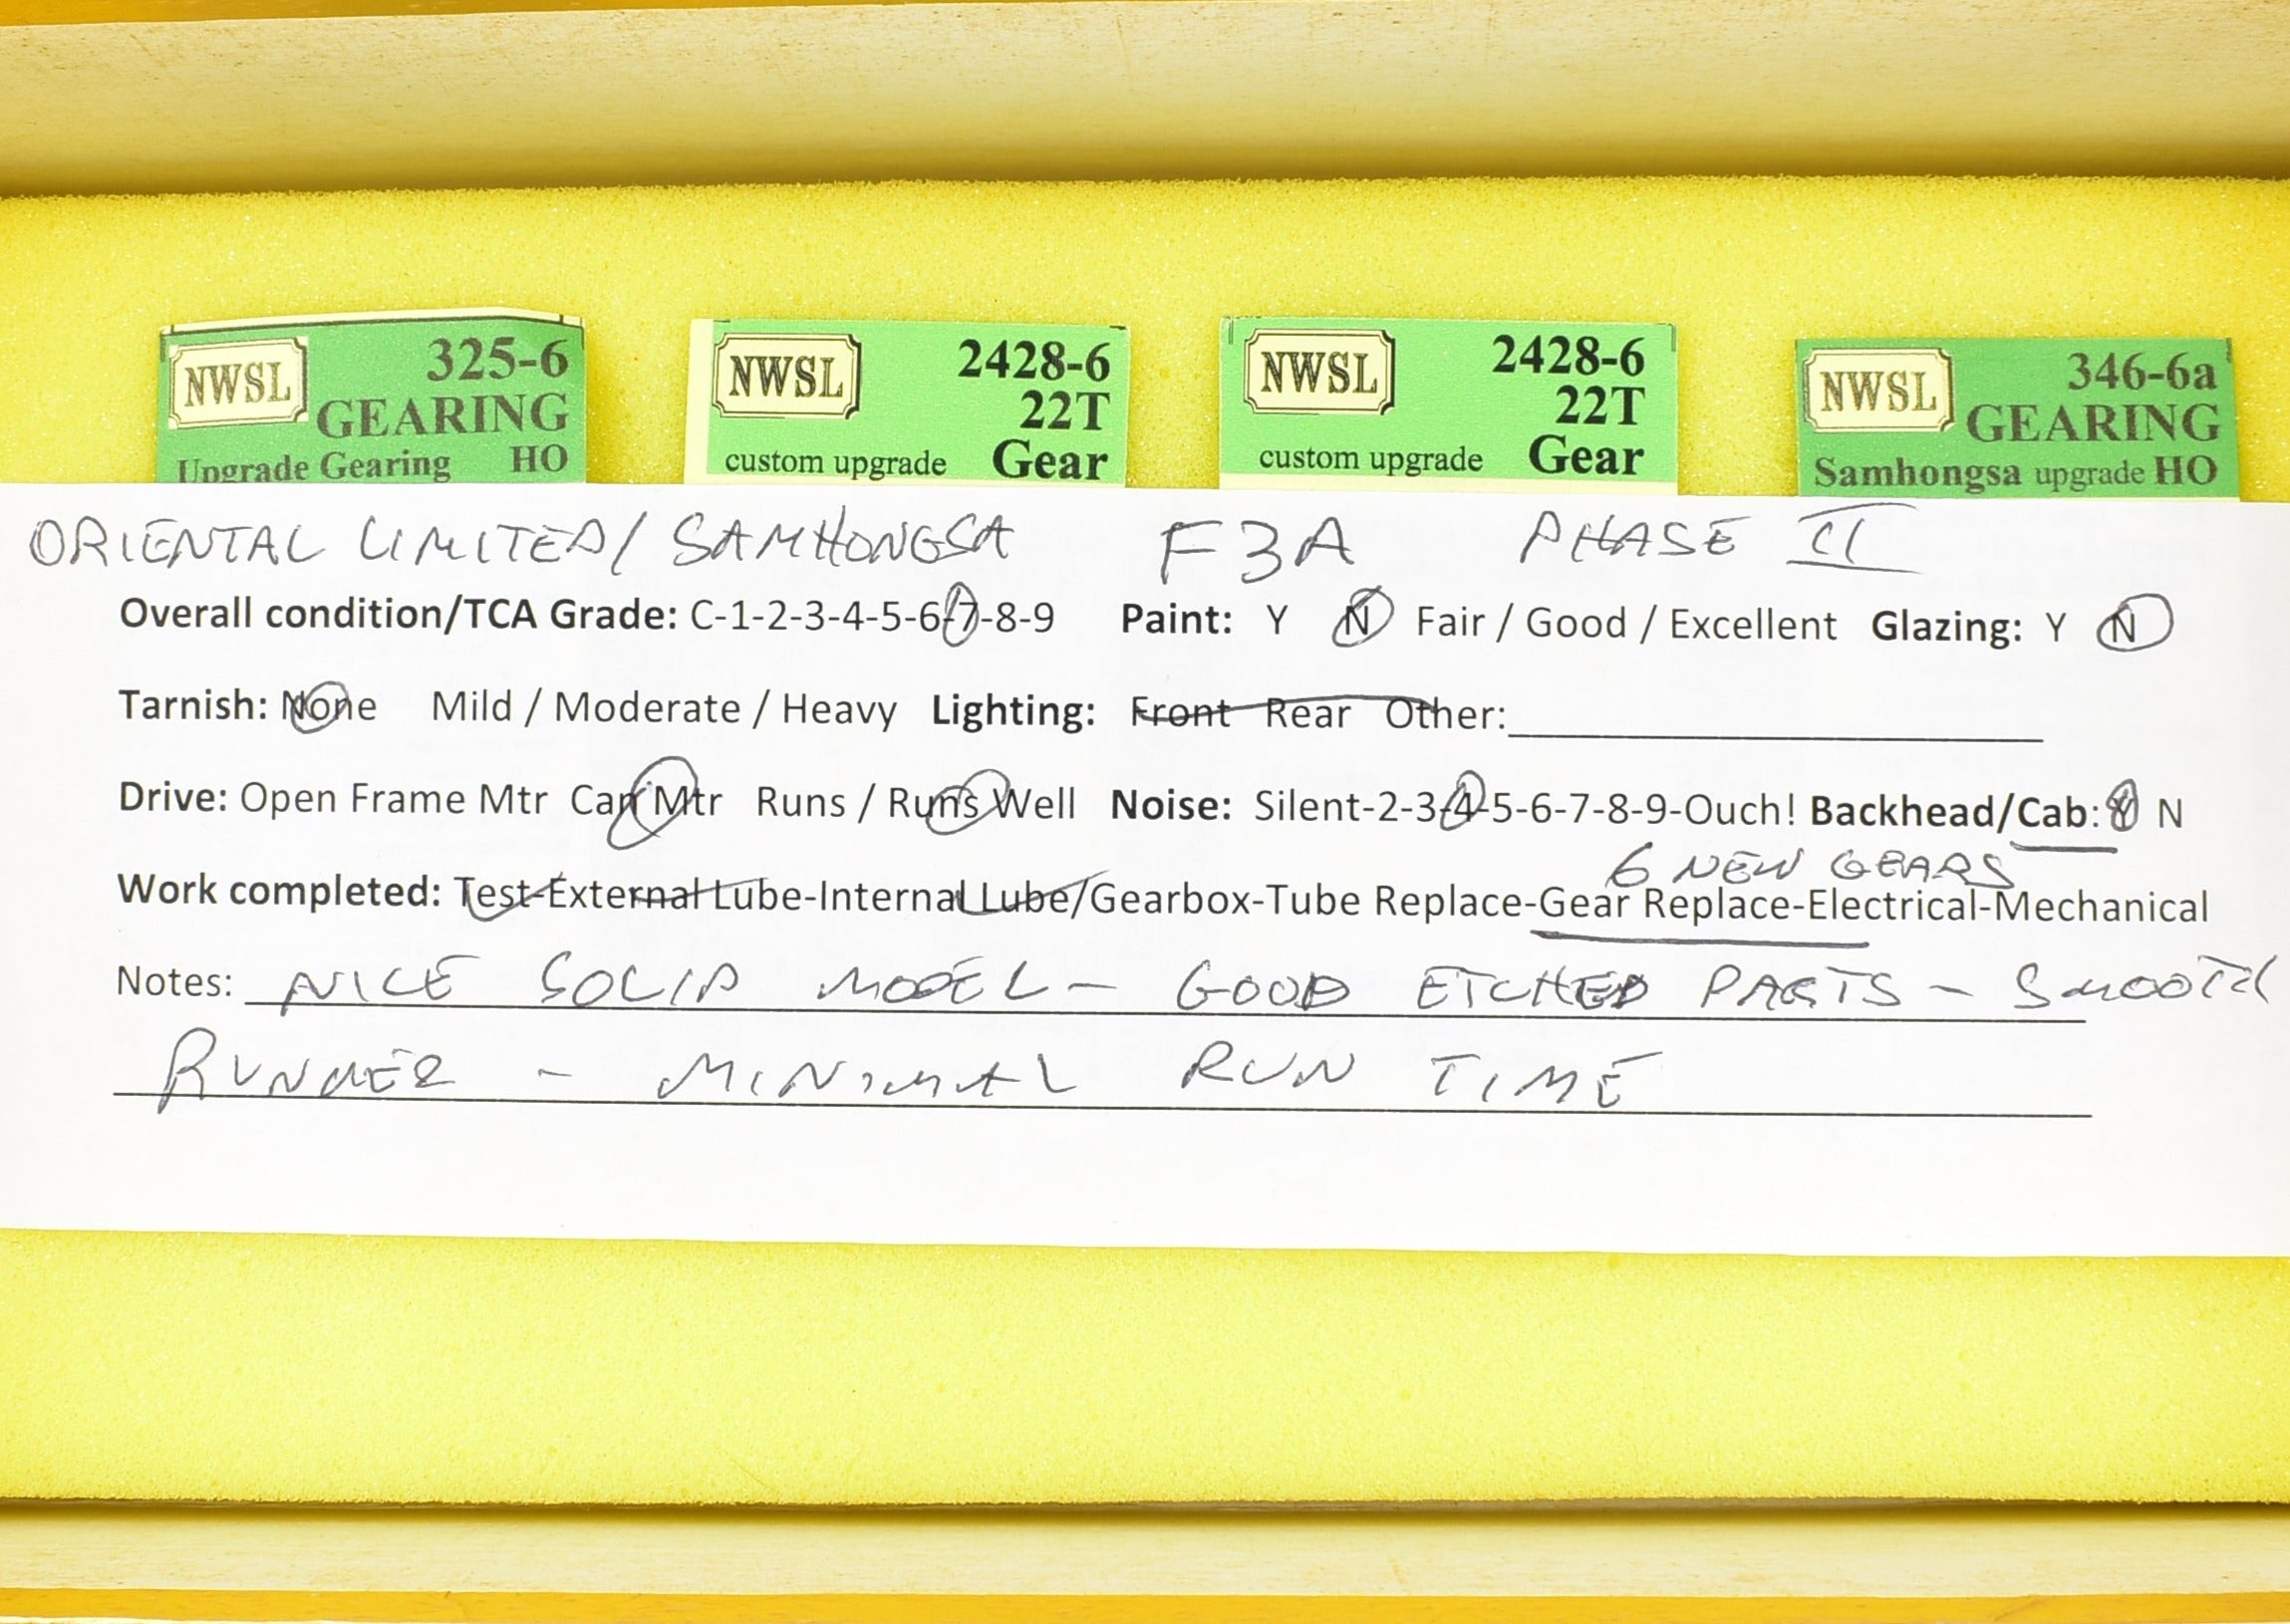 NWSL 325-6
GEARING
Upgrade Gearing HO
NWSL 2428-6
22T
custom upgrade Gear
NWSL 2428-6
22T
custom upgrade Gear
NWSL 346-6a
GEARING
Samhongsa upgrade HO
ORIENTAL LIMITED/SAMHONGSA F3A PHASE II
Overall condition/TCA Grade: C-1-2-3-4-5-6-7-8-9 Paint: Y N Fair / Good / Excellent Glazing: Y N
Tarnish: None Mild / Moderate / Heavy Lighting: Front Rear Other:
Drive: Open Frame Mtr Can Mtr Runs / Runs Well Noise: Silent-2-3-4-5-6-7-8-9-Ouch! Backhead/Cab: Y N
6 NEW GEARS
Work completed: Test-External Lube-Internal Lube/Gearbox-Tube Replace-Gear Replace-Electrical-Mechanical
Notes: NICE SOLID MODEL - GOOD ETCHED PARTS - SMOOTH
RUNNER - MINIMAL RUN TIME